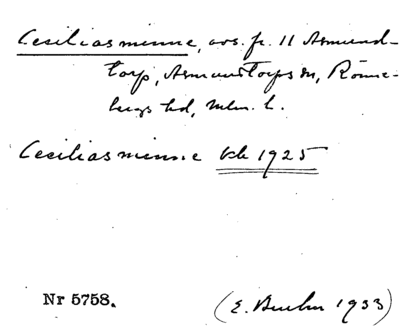 Ceciliasminne, avs. fr. 11 Asmund-
torp, Asmundtorps sn, Rönne-
bergs hd, Mlm. l.
Ceciliasminne kb 1925
Nr 5758.
(E. Buhn 1933)